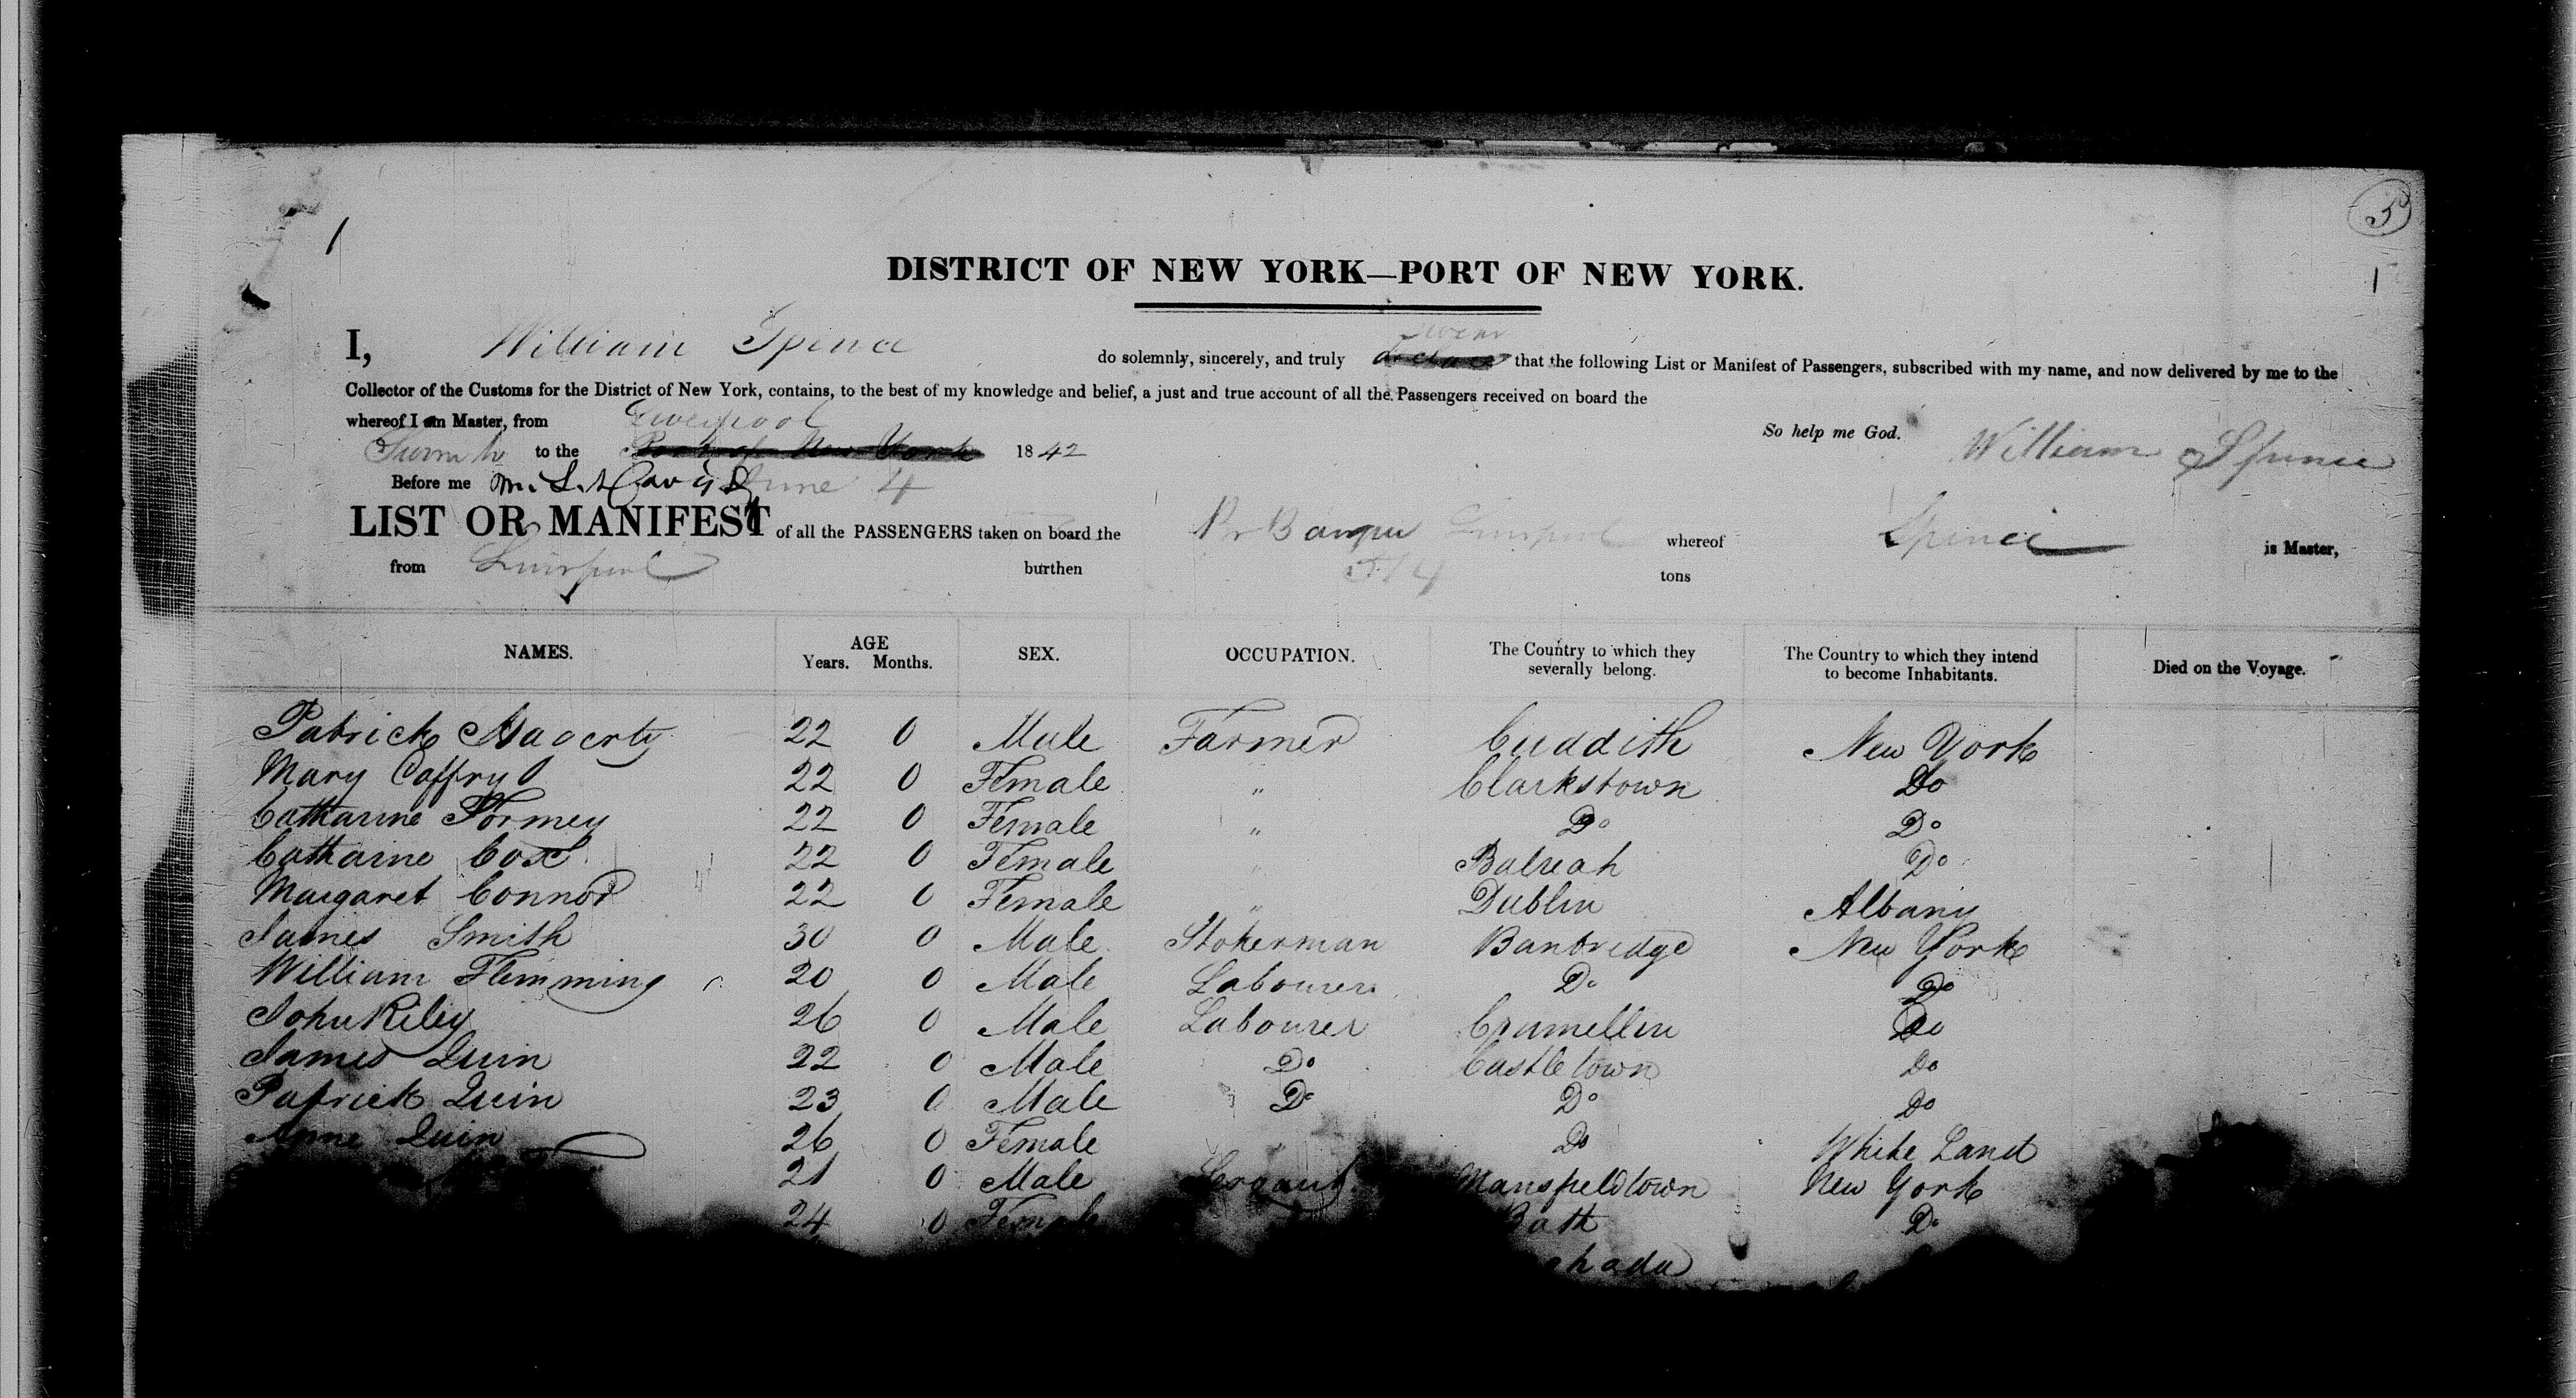 5
1
1
DISTRICT OF NEW YORK—PORT OF NEW YORK.
I, William Spence do solemnly, sincerely, and truly swear that the following List or Manifest of Passengers, subscribed with my name, and now delivered by me to the
Collector of the Customs for the District of New York, contains, to the best of my knowledge and belief, a just and true account of all the Passengers received on board the
whereof I am Master, from Liverpool
So help me God. William Spence
Sworn to the Port of New York 1842
Before me June 4
LIST OR MANIFEST of all the PASSENGERS taken on board the Br Barque Liverpool whereof Spence is Master,
from Liverpool burthen tons
NAMES. AGE Years. Months. SEX. OCCUPATION. The Country to which they severally belong. The Country to which they intend to become Inhabitants. Died on the Voyage.
Patrick Hagerty 22 0 Male Farmer Cuddith New York
Mary Caffry 22 0 Female " Clarkstown Do
Catharine Tormey 22 0 Female " Do Do
Catharine Cox 22 0 Female " Balreah Do
Margaret Connor 22 0 Female " Dublin Albany
James Smith 30 0 Male Stokerman Banbridge New York
William Flemming 20 0 Male Labourer Do Do
John Riley 26 0 Male Labourer Crumellin Do
James Quin 22 0 Male Do Castletown Do
Patrick Quin 23 0 Male Do Do Do
Anne Quin 26 0 Female Do White Land
21 0 Male Servant Mansfieldtown New York
24 0 Female Bath Do